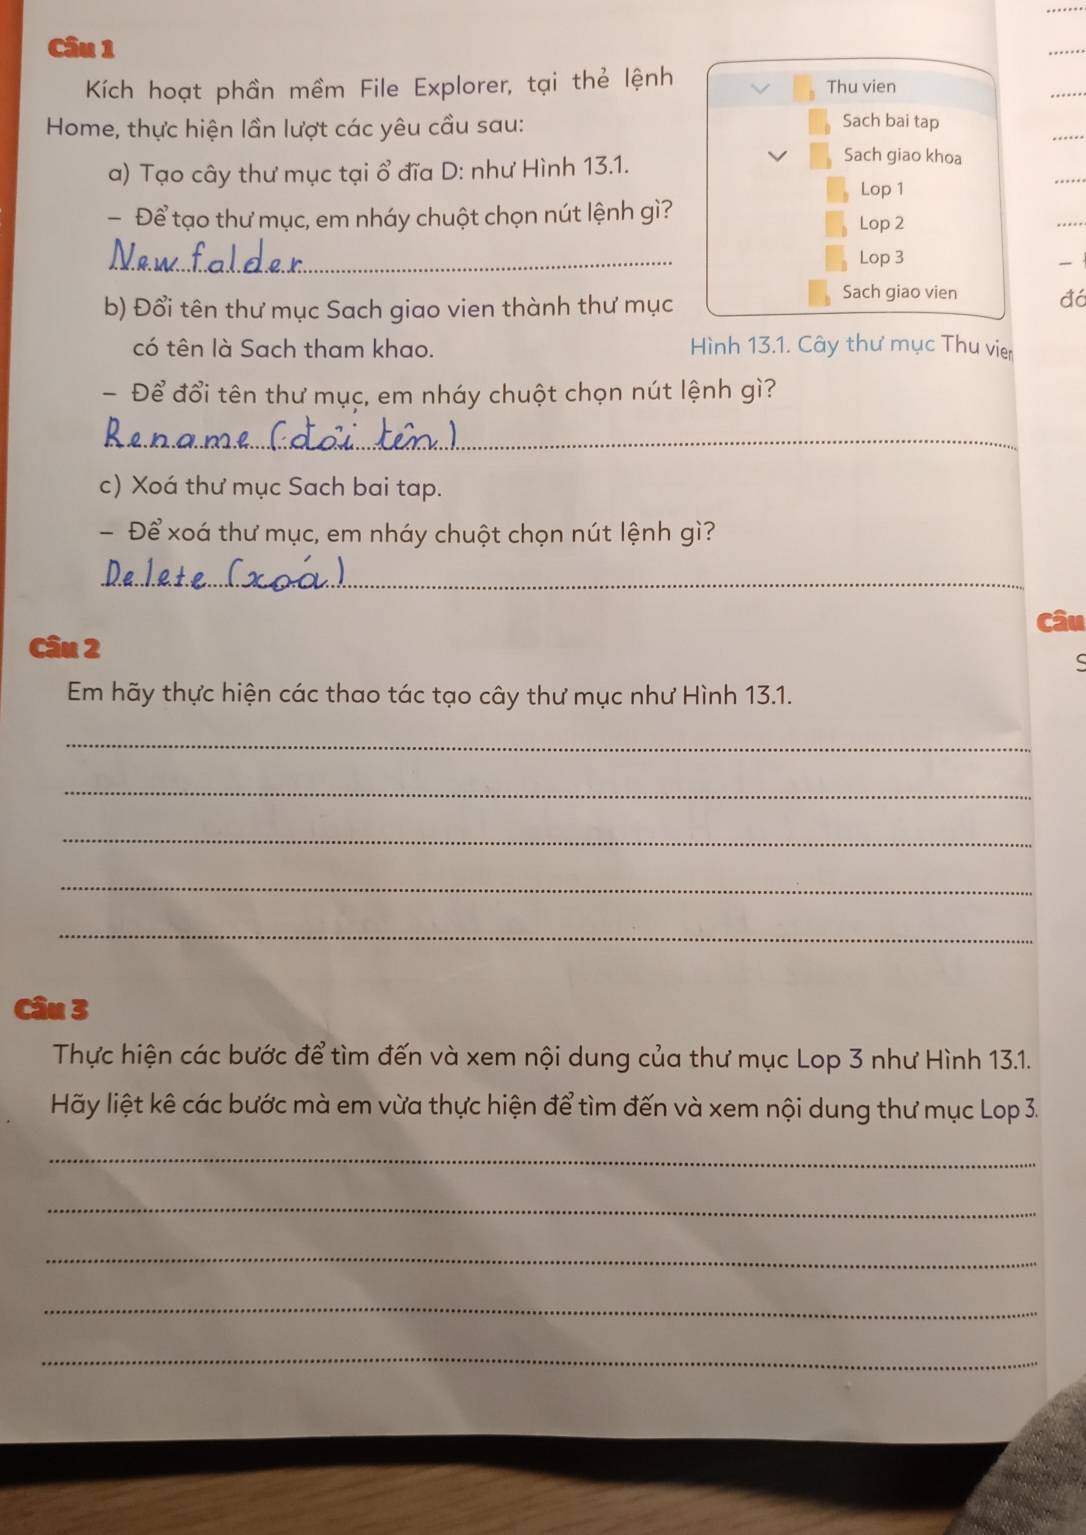 Câu 1
Kích hoạt phần mềm File Explorer, tại thẻ lệnh
Home, thực hiện lần lượt các yêu cầu sau:
a) Tạo cây thư mục tại ổ đĩa D: như Hình 13.1.
– Để tạo thư mục, em nháy chuột chọn nút lệnh gì?
New falder
b) Đổi tên thư mục Sach giao vien thành thư mục
có tên là Sach tham khao.
Thu vien
Sach bai tap
Sach giao khoa
Lop 1
Lop 2
Lop 3
Sach giao vien
Hình 13.1. Cây thư mục Thu vien
– Để đổi tên thư mục, em nháy chuột chọn nút lệnh gì?
Rename (đổi tên)
c) Xoá thư mục Sach bai tap.
– Để xoá thư mục, em nháy chuột chọn nút lệnh gì?
Delete (xoá)
Câu 2
Em hãy thực hiện các thao tác tạo cây thư mục như Hình 13.1.
Câu 3
Thực hiện các bước để tìm đến và xem nội dung của thư mục Lop 3 như Hình 13.1.
Hãy liệt kê các bước mà em vừa thực hiện để tìm đến và xem nội dung thư mục Lop 3.
Câu